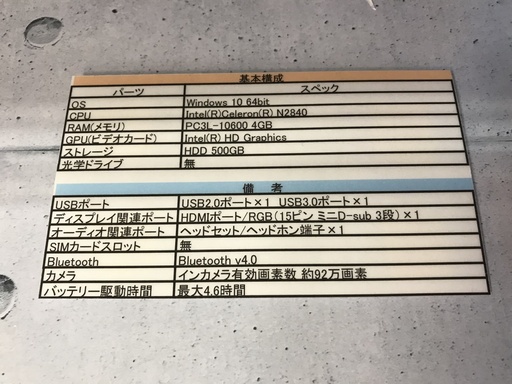 基本構成
パーツ スペック
OS Windows 10 64bit
CPU Intel(R)Celeron(R) N2840
RAM(メモリ) PC3L-10600 4GB
GPU(ビデオカード) Intel(R) HD Graphics
ストレージ HDD 500GB
光学ドライブ 無
備 考
USBポート USB2.0ポート×1 USB3.0ポート×1
ディスプレイ関連ポート HDMIポート/RGB(15ピン ミニD-sub 3段)×1
オーディオ関連ポート ヘッドセット/ヘッドホン端子×1
SIMカードスロット 無
Bluetooth Bluetooth v4.0
カメラ インカメラ有効画素数 約92万画素
バッテリー駆動時間 最大4.6時間